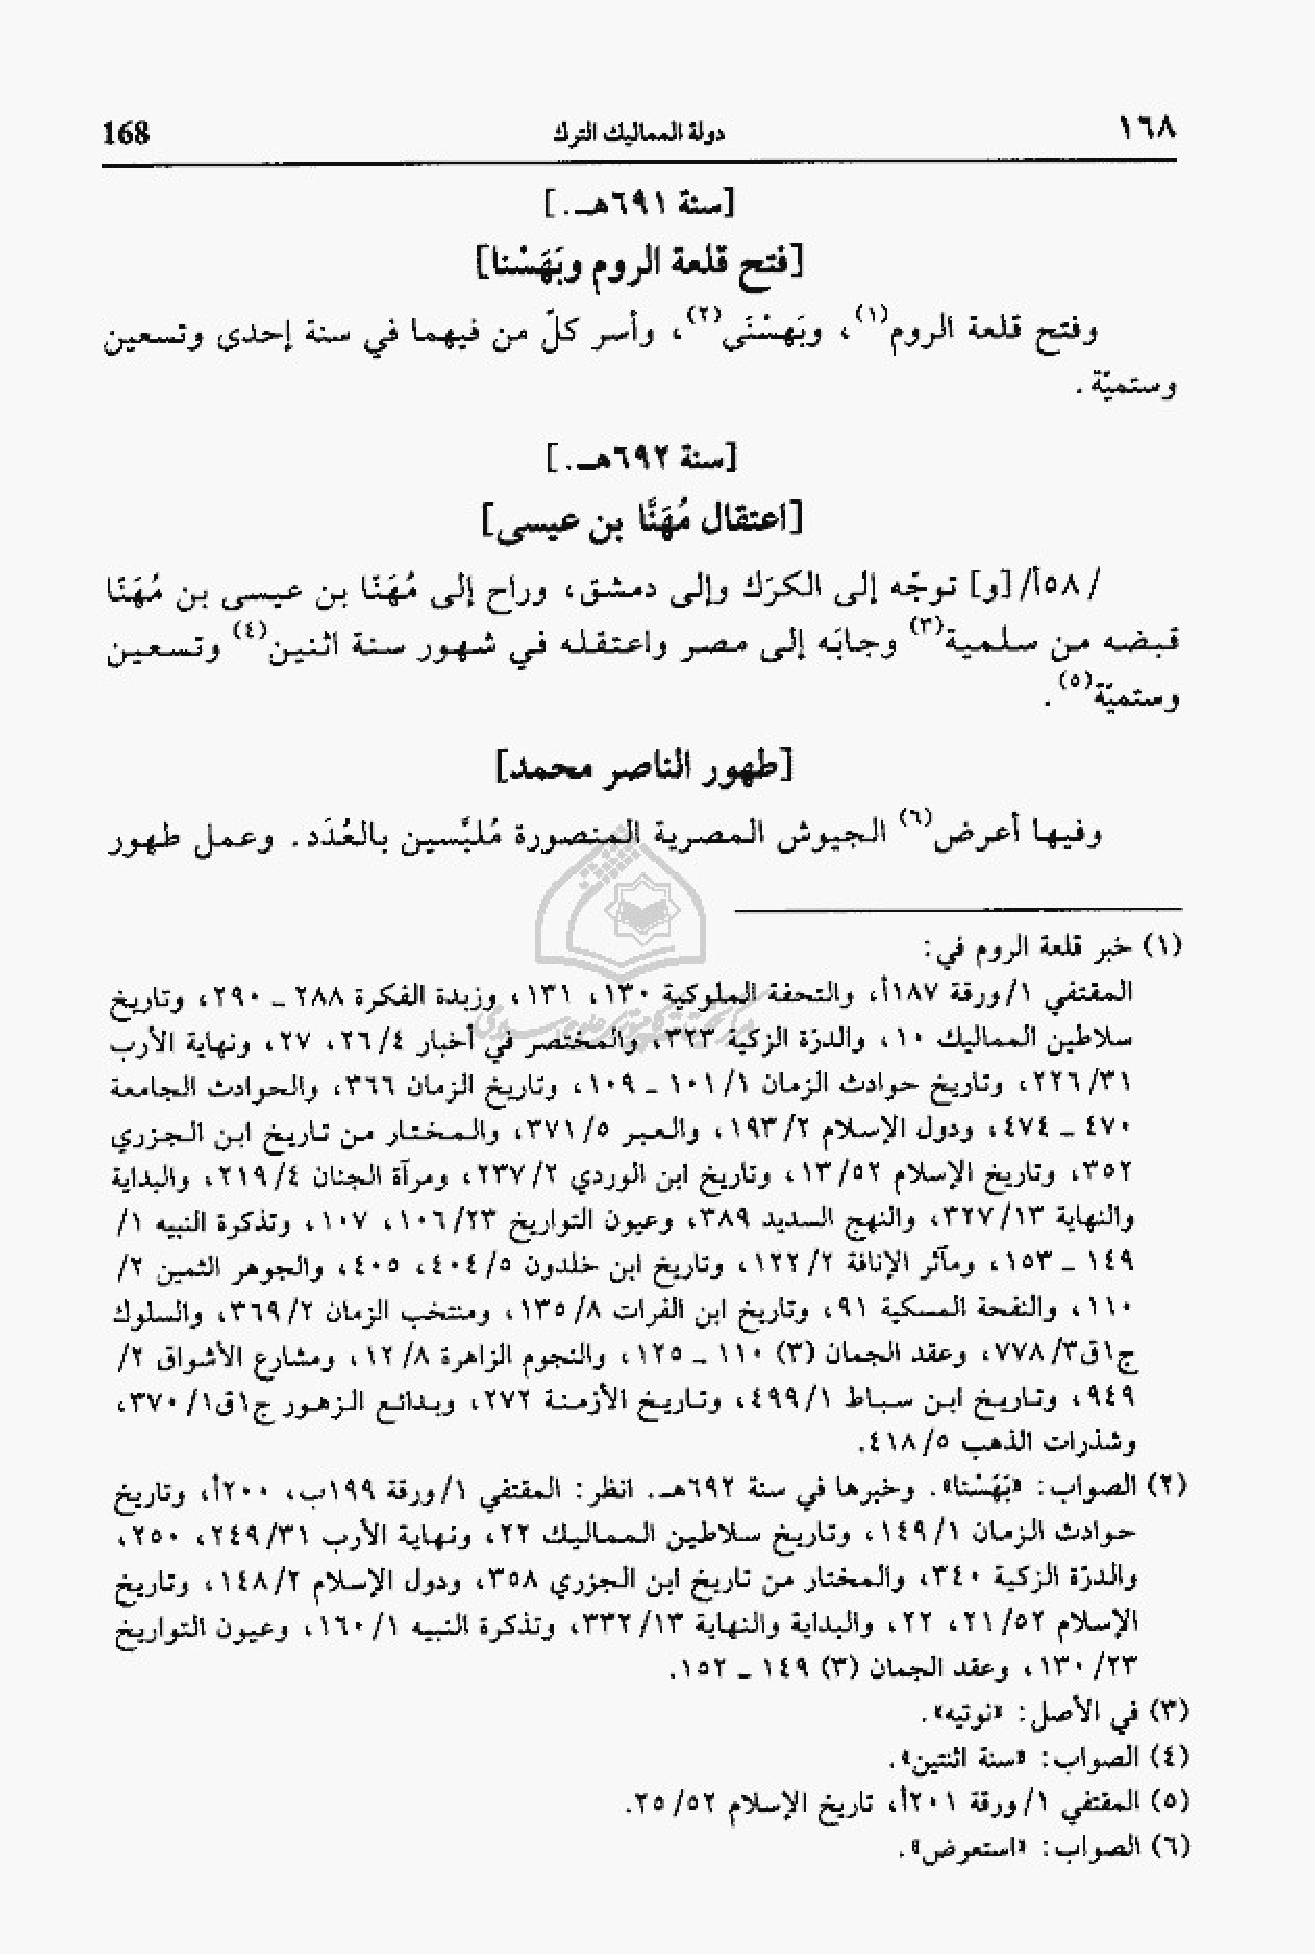 ١٦٨ دولة المماليك الترك 168
[سنة ٦٩١هـ.]
[فتح قلعة الروم وبَهَسْنا]
وفتح قلعة الروم(١)، وبَهسْنَى(٢)، وأسر كلّ من فيهما في سنة إحدى وتسعين
وستميّة.
[سنة ٦٩٢هـ.]
[اعتقال مُهَنَّا بن عيسى]
/٥٨أ/ [و] توجّه إلى الكرَك وإلى دمشق، وراح إلى مُهَنّا بن عيسى بن مُهَنّا
قبضه من سلمية(٣) وجابَه إلى مصر واعتقله في شهور سنة اثنين(٤) وتسعين
وستميّة(٥).
[طهور الناصر محمد]
وفيها أعرض(٦) الجيوش المصرية المنصورة مُلبَّسين بالعُدَد. وعمل طهور
(١) خبر قلعة الروم في:
المقتفي ١/ورقة ١٨٧أ، والتحفة الملوكية ١٣٠، ١٣١، وزبدة الفكرة ٢٨٨ ــ ٢٩٠، وتاريخ
سلاطين المماليك ١٠، والدرّة الزكية ٣٢٣، والمختصر في أخبار ٤/٢٦، ٢٧، ونهاية الأرب
٣١/٢٢٦، وتاريخ حوادث الزمان ١/١٠١ ــ ١٠٩، وتاريخ الزمان ٣٦٦، والحوادث الجامعة
٤٧٠ ــ ٤٧٤، ودول الإسلام ٢/١٩٣، والعبر ٥/٣٧١، والمختار من تاريخ ابن الجزري
٣٥٢، وتاريخ الإسلام ٥٢/١٣، وتاريخ ابن الوردي ٢/٢٣٧، ومرآة الجنان ٤/٢١٩، والبداية
والنهاية ١٣/٣٢٧، والنهج السديد ٣٨٩، وعيون التواريخ ٢٣/١٠٦، ١٠٧، وتذكرة النبيه ١/
١٤٩ ــ ١٥٣، ومآثر الإنافة ٢/١٢٢، وتاريخ ابن خلدون ٥/٤٠٤، ٤٠٥، والجوهر الثمين ٢/
١١٠، والنفحة المسكية ٩١، وتاريخ ابن الفرات ٨/١٣٥، ومنتخب الزمان ٢/٣٦٩، والسلوك
ج١ق٣/٧٧٨، وعقد الجمان (٣) ١١٠ ــ ١٢٥، والنجوم الزاهرة ٨/١٢، ومشارع الأشواق ٢/
٩٤٩، وتاريخ ابن سباط ١/٤٩٩، وتاريخ الأزمنة ٢٧٢، وبدائع الزهور ج١ق١/٣٧٠،
وشذرات الذهب ٥/٤١٨.
(٢) الصواب: «بَهَسْنا». وخبرها في سنة ٦٩٢هـ. انظر: المقتفي ١/ورقة ١٩٩ب، ٢٠٠أ، وتاريخ
حوادث الزمان ١/١٤٩، وتاريخ سلاطين المماليك ٢٢، ونهاية الأرب ٣١/٢٤٩، ٢٥٠،
والدرّة الزكية ٣٤٠، والمختار من تاريخ ابن الجزري ٣٥٨، ودول الإسلام ٢/١٤٨، وتاريخ
الإسلام ٥٢/٢١، ٢٢، والبداية والنهاية ١٣/٣٣٢، وتذكرة النبيه ١/١٦٠، وعيون التواريخ
٢٣/١٣٠، وعقد الجمان (٣) ١٤٩ ــ ١٥٢.
(٣) في الأصل: «نوتيه».
(٤) الصواب: «سنة اثنتين».
(٥) المقتفي ١/ورقة ٢٠١أ، تاريخ الإسلام ٥٢/٢٥.
(٦) الصواب: «استعرض».